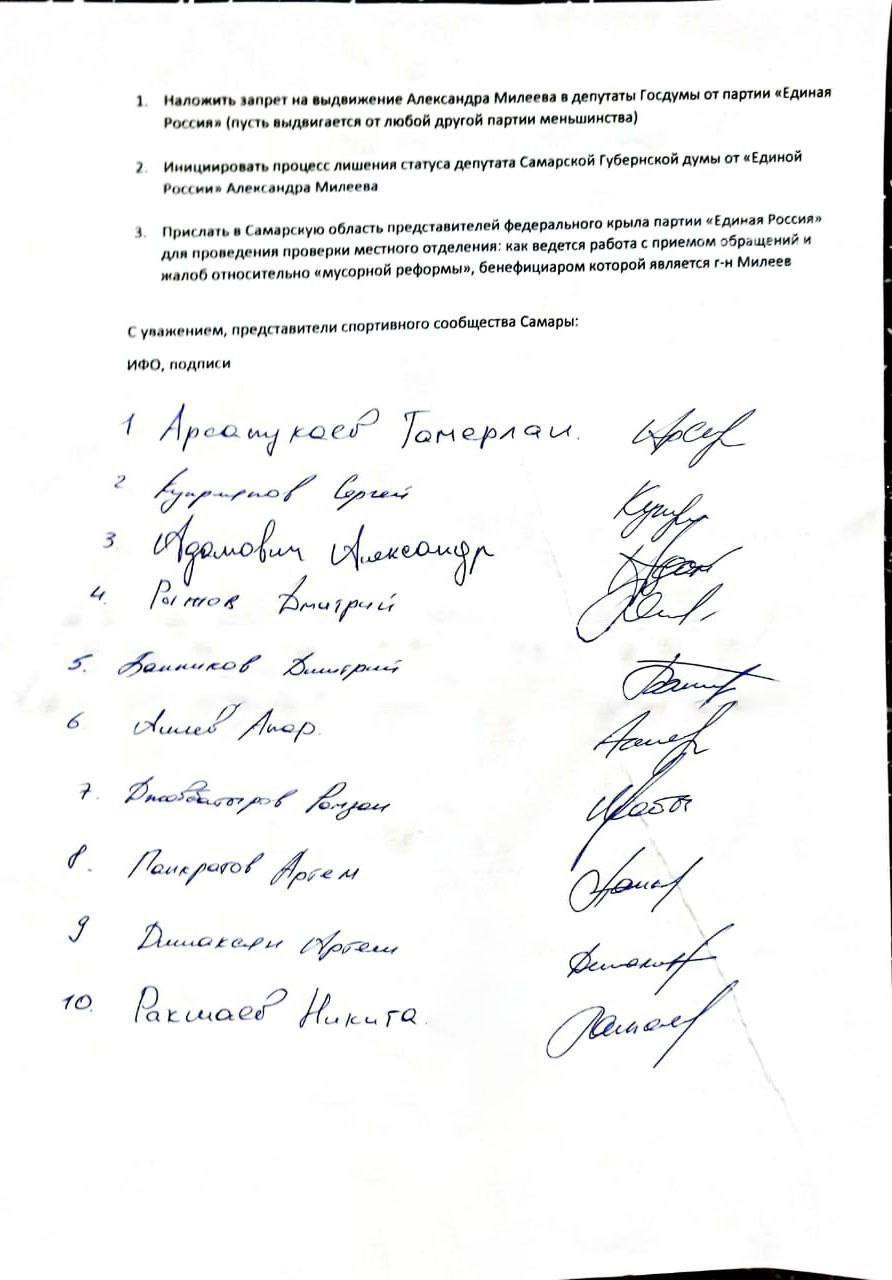 1. Наложить запрет на выдвижение Александра Милеева в депутаты Госдумы от партии «Единая
Россия» (пусть выдвигается от любой другой партии меньшинства)
2. Инициировать процесс лишения статуса депутата Самарской Губернской думы от «Единой
России» Александра Милеева
3. Прислать в Самарскую область представителей федерального крыла партии «Единая Россия»
для проведения проверки местного отделения: как ведется работа с приемом обращений и
жалоб относительно «мусорной реформы», бенефициаром которой является г-н Милеев
С уважением, представители спортивного сообщества Самары:
ИФО, подписи
1 Арсанукаев Тамерлан.
2 Куприянов Сергей
3 Адамович Александр
4. Дмитрий
5. Банников Дмитрий
6
7.
8. Панкратов Артем
9 Артем
10. Ракшаев Никита.